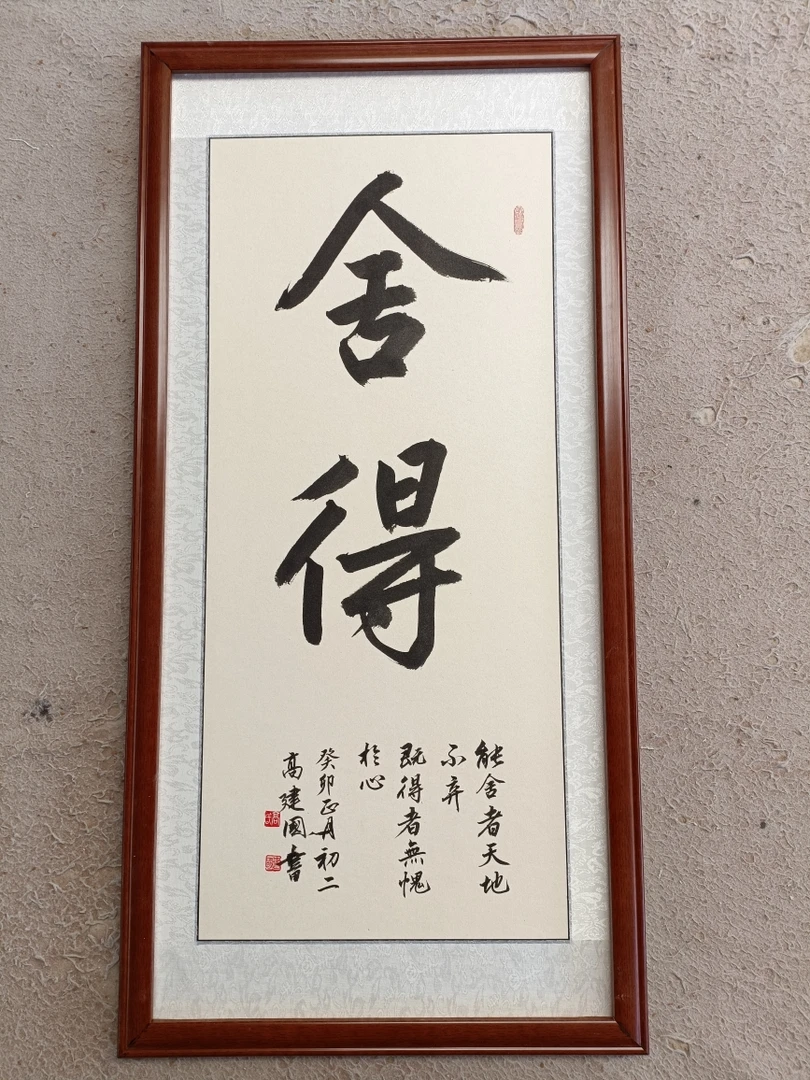 舍得
能舍者天地
不弃
既得者無愧
於心
癸卯正月初二
高建國書